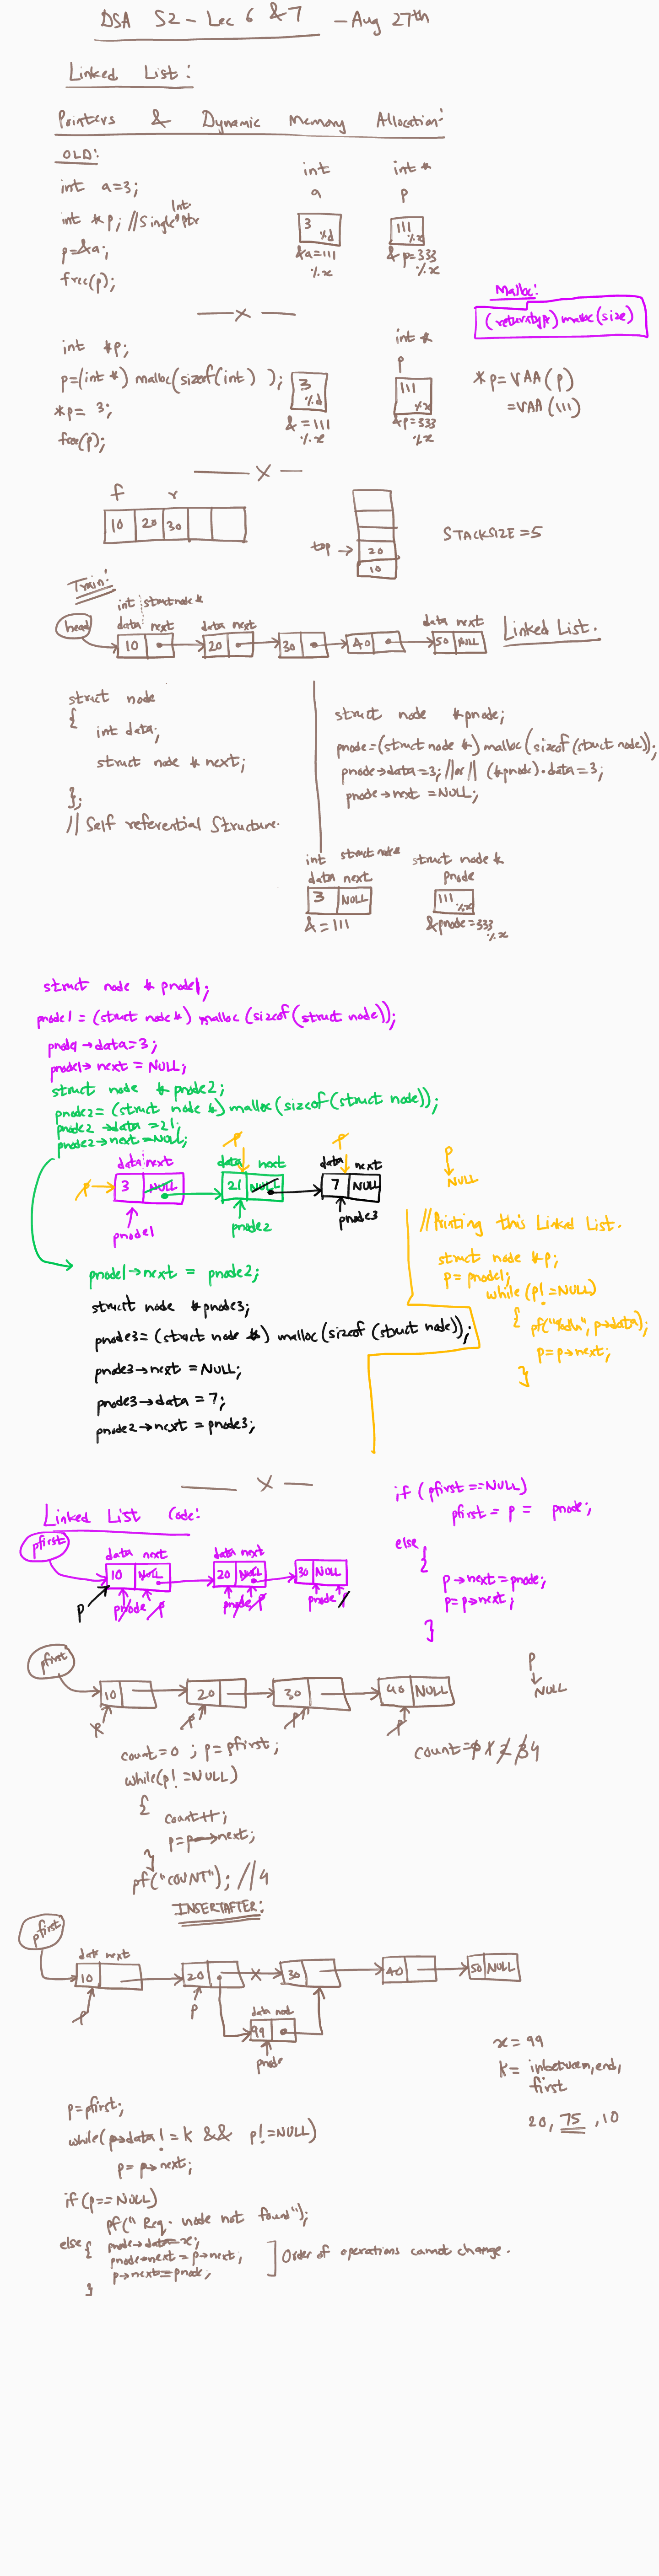 DSA S2 - Lec 6 & 7 - Aug 27th
Linked List:
Pointers & Dynamic Memory Allocation:
OLD:
int a=3;
int *p; //Single Int Ptr
p=&a;
free(p);
int int *
a p
3 %d 111 %x
&a=111 &p=333
%x %x
Malloc:
(returntype) malloc(size)
— x —
int *p;
p=(int *) malloc(sizeof(int) );
*p= 3;
free(p);
int *
p
3 %d 111 %x
&=111 &p=333
%x %x
*p=VAA(p)
=VAA(111)
— x —
f r
10 20 30
top → 20
10
STACKSIZE=5
Train:
int struct node *
data next data next data next
head 10 20 30 40 50 NULL Linked List.
struct node
{
int data;
struct node * next;
};
// Self referential Structure.
struct node *pnode;
pnode=(struct node *) malloc(sizeof(struct node));
pnode→data=3; //or// (*pnode).data=3;
pnode→next =NULL;
int struct node struct node *
data next pnode
3 NULL 111 %x
&=111 &pnode=333
%x
struct node * pnode1;
pnode1 = (struct node *) malloc(sizeof(struct node));
pnode1→data=3;
pnode1→next = NULL;
struct node * pnode2;
pnode2= (struct node *) malloc(sizeof(struct node));
pnode2→data =21;
pnode2→next=NULL;
p p p
data next data next data next
p→ 3 NULL 21 NULL 7 NULL NULL
pnode1 pnode2 pnode3
pnode1→next = pnode2;
struct node *pnode3;
pnode3= (struct node *) malloc(sizeof (struct node));
pnode3→next =NULL;
pnode3→data = 7;
pnode2→next = pnode3;
//Printing this Linked List.
struct node *p;
p=pnode1;
while(p!=NULL)
{ pf("%d\n", p→data);
p=p→next;
}
— x —
Linked List Code:
pfirst
data next data next
10 NULL 20 NULL 30 NULL
p pnode p pnode p pnode p
if (pfirst==NULL)
pfirst = p = pnode;
else
{
p→next=pnode;
p=p→next;
}
pfirst
10 20 30 40 NULL
p p p p
p
NULL
count=0 ; p=pfirst;
while(p!=NULL)
{
count++;
p=p→next;
}
pf("COUNT"); //4
count=0 1 2 3 4
INSERTAFTER:
pfirst
data next
10 20 x 30 40 50 NULL
p p
data next
99
pnode
x = 99
K= inbetween, end,
first
20, 75, 10
p=pfirst;
while(p→data!=K && p!=NULL)
p= p→next;
if (p==NULL)
pf(" Req. node not found");
else{ pnode→data=x;
pnode→next = p→next;
p→next=pnode;
}
] Order of operations cannot change.